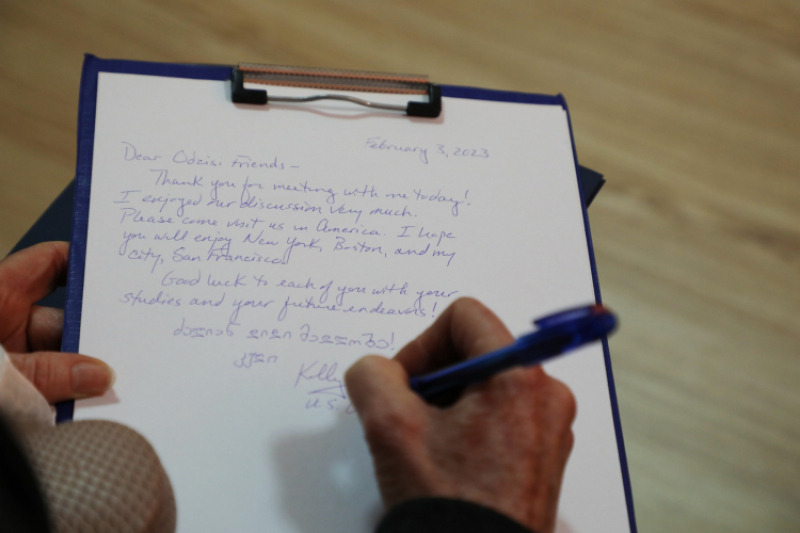 February 3, 2023
Dear Odzisi Friends –
Thank you for meeting with me today!
I enjoyed our discussion very much.
Please come visit us in America. I hope
you will enjoy New York, Boston, and my
city, San Francisco.
Good luck to each of you with your
studies and your future endeavors!
ძალიან დიდი მადლობა!
Kelly
U.S.